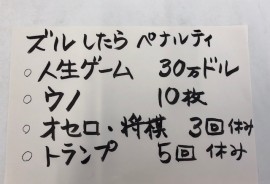 ズルしたら ペナルティ
○人生ゲーム 30万ドル
○ウノ 10枚
○オセロ・将棋 3回休み
○トランプ 5回休み